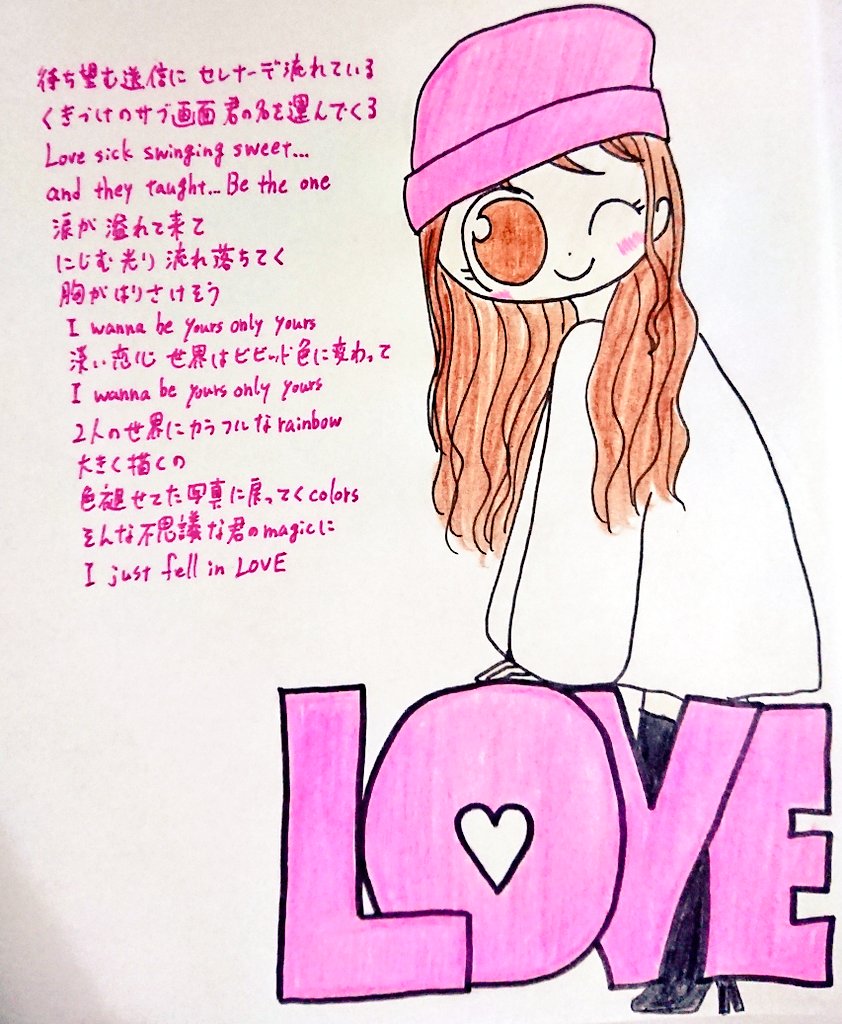 待ち望む送信に セレナーデ流れている
くぎづけのサブ画面 君の名を運んでくる
Love sick swinging sweet...
and they taught... Be the one
涙が 溢れて来て
にじむ光り 流れ落ちてく
胸がはりさけそう
I wanna be yours only yours
深い恋心 世界はビビッド色に変わって
I wanna be yours only yours
2人の世界にカラフルなrainbow
大きく描くの
色褪せてた写真に戻ってくcolors
そんな不思議な君のmagicに
I just fell in LOVE
LOVE